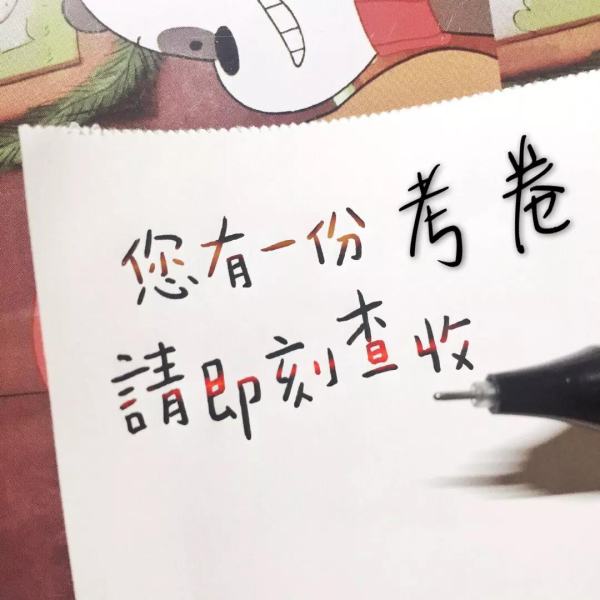 您有一份考卷
請即刻查收